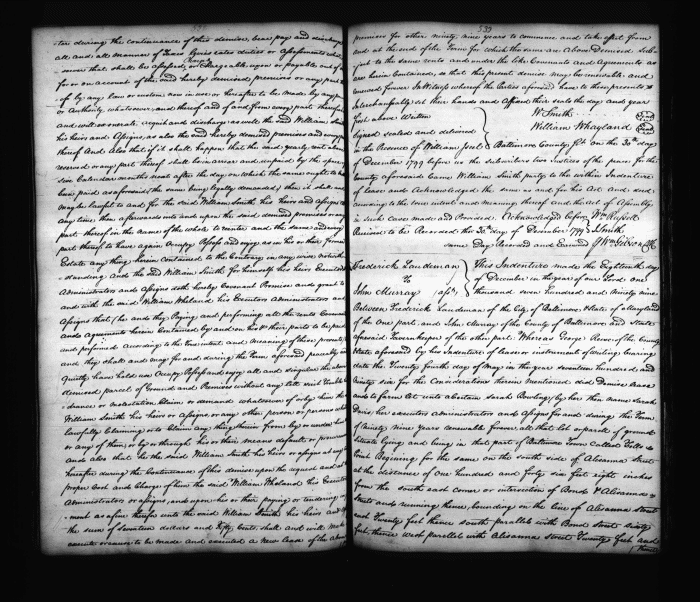 ter during the continuance of this demise, bear pay and discharge
all and all manner of Taxes Cesses rates duties or Assessments what
soever that shall be Assessed, or Chargeable, upon or payable out of
for or on account of the said hereby demised premises or any part
of by any law or custom now in use or hereafter to be made by any
or Authority, whatsoever, and thereof and of and from every part thereof
and will exonerate acquit and discharge as well the said William Smith
his heirs and Assigns, as also the said hereby demised premises and every
thereof And also that if it shall happen that the said yearly rent above
reserved or any part thereof shall be in arrear and unpaid by the space
Six Calendar months next after the day on which the same ought to have
been paid as aforesaid (the same being legally demanded) then it shall and
may be lawful to and for the said William Smith his heirs and Assigns
any time then afterwards into and upon the said demised premises or any
part thereof in the name of the whole to reenter and the same and every
part thereof to have again Occupy Possess and enjoy as in his or their former
Estate any thing herein contained to the Contrary in any wise notwith
standing. and the said William Smith for himself, his heirs Executors
Administrators and Assigns doth hereby Covenant Promise and grant to
and with the said William Whaland his Executors Administrators and
Assigns that (he and they Paying and performing all the rents Covenants
and Agreements herein Contained by and on his & their parts to be paid
and performed According to the true intent and Meaning of these presents)
and they shall and may for and during the term aforesaid peaceably and
Quietly have hold use Occupy Possess and enjoy all and singular the above
demised parcel of Ground and Premises without any lett suit Trouble
drance or molestation Claim or demand whatsoever of or by him the
William Smith his heirs or Assigns or any other person or persons what
lawfully Claiming or to Claim any thing therein from by or under him
or any of them, or by or through his or their means default, or procurement
and also that he the said William Smith his heirs or Assigns at any
hereafter during the Continuance of this demise upon the request and at
proper Cost and Charge of him the said William Whaland his Executors
Administrators or Assigns and upon his or their paying or tendering
ment as a fine therefor unto the said William Smith his heirs and
the sum of Seventeen dollars and Fifty Cents shall and will make
execute or cause to be made and executed a new lease of the above
533
premises for other ninety nine years to commence and take effect from
and at the end of the Term for which the same are Above Demised Sub
ject to the same rents and under the like Covenants and Agreements as
are herein Contained, so that this present demise may be renewable and
renewed forever In Witness whereof the Parties aforesaid have to these presents
Interchangeably set their hands and Affixed their seals the day and year
first above Written
W. Smith
Signed sealed and delivered
William Whayland
in the Presence of William Jessop
Baltimore County Sct on the 30th day
of December 1799 before us the Subscribers two Justices of the peace for the
County aforesaid Came William Smith party to the within Indenture
of Lease and Acknowledged the same as and for his Act and deed
according to the true intent and meaning thereof and the Act of Assembly
in such Case made and Provided. Acknowledged before Wm Russell
Received to be Recorded the 31st day of December 1799 J Smith
same day Recorded and Examined
Wm Gibson Clk
Frederick Landeman
To
John Murray
This Indenture made the Eighteenth day
of December in the year of our Lord one
thousand seven hundred and Ninety nine
Between Frederick Landeman of the City of Baltimore & State of Maryland
of the One part, and John Murray of the County of Baltimore and State
aforesaid Tavernkeeper of the other part: Whereas George Reese of the County
State aforesaid by his Indenture of lease or instrument of writing bearing
date the Twenty fourth day of May in the year seventeen hundred and
Ninety six for the Considerations therein mentioned did Demise lease
and to farm let unto a certain Sarah Bowling by her then name Sarah
Davis, her executors administrators and Assigns for and during the Term
of Ninety Nine years renewable forever all that lot or parcel of ground
situate lying and being in that part of Baltimore Town Called Fells
Point Begining for the same on the south side of Alisanna street
at the distance of One hundred and forty six feet eight inches
from the south east corner or intersection of Bond & Alisanna
Streets and running thence bounding on the line of Alisanna street
east Twenty feet thence south parallel with Bond Street sixty
feet, thence west parallel with Alisanna street Twenty feet and
thence